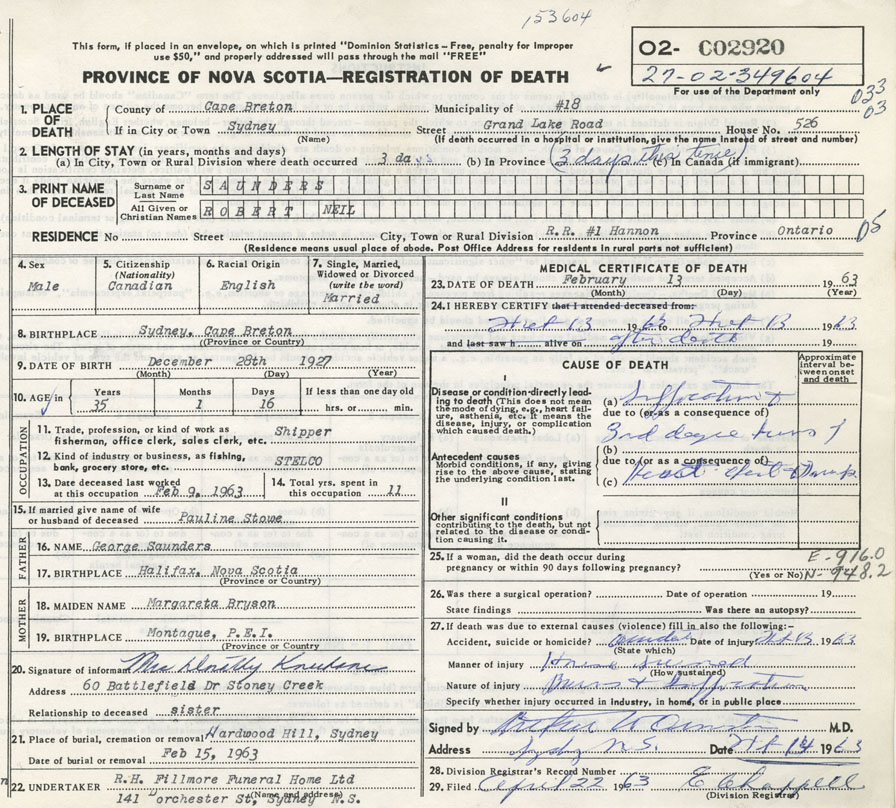 153604
This form, if placed in an envelope, on which is printed "Dominion Statistics – Free, penalty for improper
use $50," and properly addressed will pass through the mail "FREE"
PROVINCE OF NOVA SCOTIA—REGISTRATION OF DEATH
02- C02920
27-02-349604
For use of the Department only
033
03
1. PLACE OF DEATH
County of Cape Breton Municipality of #18
If in City or Town Sydney Street Grand Lake Road House No. 526
(Name) (If death occurred in a hospital or institution, give the name instead of street and number)
2. LENGTH OF STAY (in years, months and days)
(a) In City, Town or Rural Division where death occurred 3 days (b) In Province (3 days this time) (c) In Canada (if immigrant)
3. PRINT NAME OF DECEASED
Surname or Last Name SAUNDERS
All Given or Christian Names ROBERT NEIL
RESIDENCE No Street City, Town or Rural Division R.R. #1 Hannon Province Ontario 05
(Residence means usual place of abode. Post Office Address for residents in rural parts not sufficient)
4. Sex
Male
5. Citizenship
(Nationality)
Canadian
6. Racial Origin
English
7. Single, Married,
Widowed or Divorced
(write the word)
Married
8. BIRTHPLACE Sydney, Cape Breton
(Province or Country)
9. DATE OF BIRTH December 28th 1927
(Month) (Day) (Year)
10. AGE in
Years Months Days If less than one day old
35 1 16 hrs. or min.
OCCUPATION
11. Trade, profession or kind of work as
fisherman, office clerk, sales clerk, etc. Shipper
12. Kind of industry or business, as fishing,
bank, grocery store, etc. STELCO
13. Date deceased last worked
at this occupation Feb 9, 1963
14. Total yrs. spent in
this occupation 11
15. If married give name of wife
or husband of deceased Pauline Stowe
FATHER
16. NAME George Saunders
17. BIRTHPLACE Halifax, Nova Scotia
(Province or Country)
MOTHER
18. MAIDEN NAME Margareta Bryson
19. BIRTHPLACE Montague, P.E.I.
(Province or Country
20. Signature of informant Mrs Dorothy
Address 60 Battlefield Dr Stoney Creek
Relationship to deceased sister
21. Place of burial, cremation or removal Hardwood Hill, Sydney
Date of burial or removal Feb 15, 1963
22. UNDERTAKER R.H. Fillmore Funeral Home Ltd
(Name and address)
141 Dorchester St, Sydney N.S.
MEDICAL CERTIFICATE OF DEATH
23. DATE OF DEATH February 13 1963
(Month) (Day) (Year)
24. I HEREBY CERTIFY that I attended deceased from:
Feb 13 1963 to Feb 13 1963
and last saw h alive on after death 19
CAUSE OF DEATH
Approximate
interval between
onset
and death
I
Disease or condition directly leading
to death (This does not mean
the mode of dying, e.g., heart failure,
asthenia, etc. It means the
disease, injury, or complication
which caused death.)
(a) Suffocation &
due to (or as a consequence of)
3rd degree burns of
Antecedent causes
Morbid conditions, if any, giving
rise to the above cause, stating
the underlying condition last.
(b)
due to (or as a consequence of)
(c)
II
Other significant conditions
contributing to the death, but not
related to the disease or condition
causing it.
25. If a woman, did the death occur during
pregnancy or within 90 days following pregnancy?
(Yes or No)
E-916.0
N-948.2
26. Was there a surgical operation? Date of operation 19
State findings Was there an autopsy?
27. If death was due to external causes (violence) fill in also the following:–
Accident, suicide or homicide? Accident Date of injury Feb 13 1963
(State which)
Manner of injury House burned
(How sustained)
Nature of injury Burns & Suffocation
Specify whether injury occurred in industry, in home, or in public place
Signed by M.D.
Address Sydney N.S. Date Feb 14 1963
28. Division Registrar's Record Number
29. Filed April 22 1963 E Chappell
(Division Registrar)